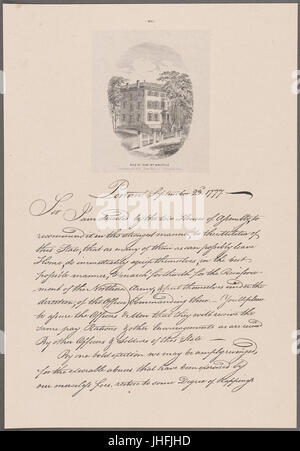 Boston September 23d 1777
Sir I am directed by the Hon House of Assembly to
recommend in the strongest manner to the Militia of
this State, that as many of them as can possibly leave
Home, do immediately equip themselves, in the best
possible manner, & march forthwith for the Reinforce
ment of the Northern Army, & put themselves under the
direction of the Officer Commanding there — You'll please
to assure the Officers & Men that they will receive the
same pay Rations & other Encouragements as are received
By other Officers & Soldiers of this State —
By one bold exertion we may be amply revenged
for the execrable abuses that have been exercised by
our merciless foes, return to some Degree of Happiness
alamy
Image ID: JHFJHD
www.alamy.com